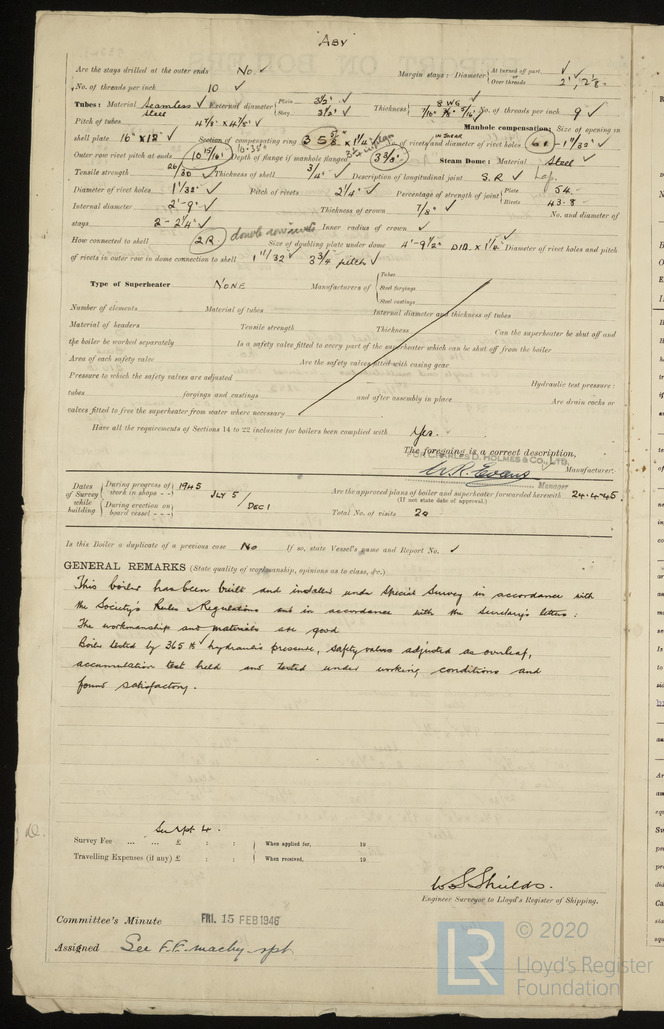 "ABY"
Are the stays drilled at the outer ends No. ✓ Margin stays: Diameter { At turned off part ✓ Over threads 2", 2⅛.
No. of threads per inch 10 ✓
Tubes: Material Seamless steel ✓ External diameter { Plain 3½" ✓ Stay 3½" ✓ Thickness { 8 WG ✓ No. of threads per inch 9 ✓
Pitch of tubes 4⅞" × 4⅞" ✓ Manhole compensation: Size of opening in
shell plate 16" × 12" ✓ Section of compensating ring × 1¼" No. of rivets and diameter of rivet holes - 1 1/32" ✓
Outer row rivet pitch at ends 10 15/16" Depth of flange if manhole flanged 3⅜" Steam Dome: Material Steel ✓
Tensile strength 26/30 ✓ Thickness of shell ¾" ✓ Description of longitudinal joint S.R ✓ Lap.
Diameter of rivet holes 1 1/32" ✓ Pitch of rivets 2¼" ✓ Percentage of strength of joint { Plate 54. Rivets 43.8
Internal diameter 2'-9" ✓ Thickness of crown 7/8" ✓ No. and diameter of
stays 2 - 2¼" ✓ Inner radius of crown ✓
How connected to shell 2R double riveted Size of doubling plate under dome 4'-9½" DIA. × 1¼" Diameter of rivet holes and pitch
of rivets in outer row in dome connection to shell 1 11/32 ✓ 3¾ pitch ✓
Type of Superheater NONE Manufacturers of { Tubes Steel forgings Steel castings
Number of elements Material of tubes Internal diameter and thickness of tubes
Material of headers Tensile strength Thickness Can the superheater be shut off and
the boiler be worked separately Is a safety valve fitted to every part of the superheater which can be shut off from the boiler
Area of each safety valve Are the safety valves fitted with easing gear
Pressure to which the safety valves are adjusted Hydraulic test pressure:
tubes forgings and castings and after assembly in place Are drain cocks or
valves fitted to free the superheater from water where necessary
Have all the requirements of Sections 14 to 22 inclusive for boilers been complied with Yes.
The foregoing is a correct description,
FOR CHARLES D. HOLMES & CO., LTD.
W.R. Evans Manufacturer.
Manager
Dates of Survey while building { During progress of work in shops - - 1945 JLY 5 / DEC 1 Are the approved plans of boiler and superheater forwarded herewith 24.4.45.
(If not state date of approval.)
During erection on board vessel - - - Total No. of visits 20
Is this Boiler a duplicate of a previous case No If so, state Vessel's name and Report No. ✓
GENERAL REMARKS (State quality of workmanship, opinions as to class, &c.)
This boiler has been built and installed under Special Survey in accordance with
the Society's Rules & Regulations and in accordance with the Secretary's letters:
The workmanship and materials are good
Boiler tested by 365 lb hydraulic pressure, safety valves adjusted as overleaf,
accumulation test held and tested under working conditions and
found satisfactory.
Survey Fee ... ... £ : : When applied for, 19
Travelling Expenses (if any) £ : : When received, 19
W S Shields.
Engineer Surveyor to Lloyd's Register of Shipping.
Committee's Minute FRI. 15 FEB 1946
Assigned See F.E. machy rpt.
LR © 2020
Lloyd's Register
Foundation